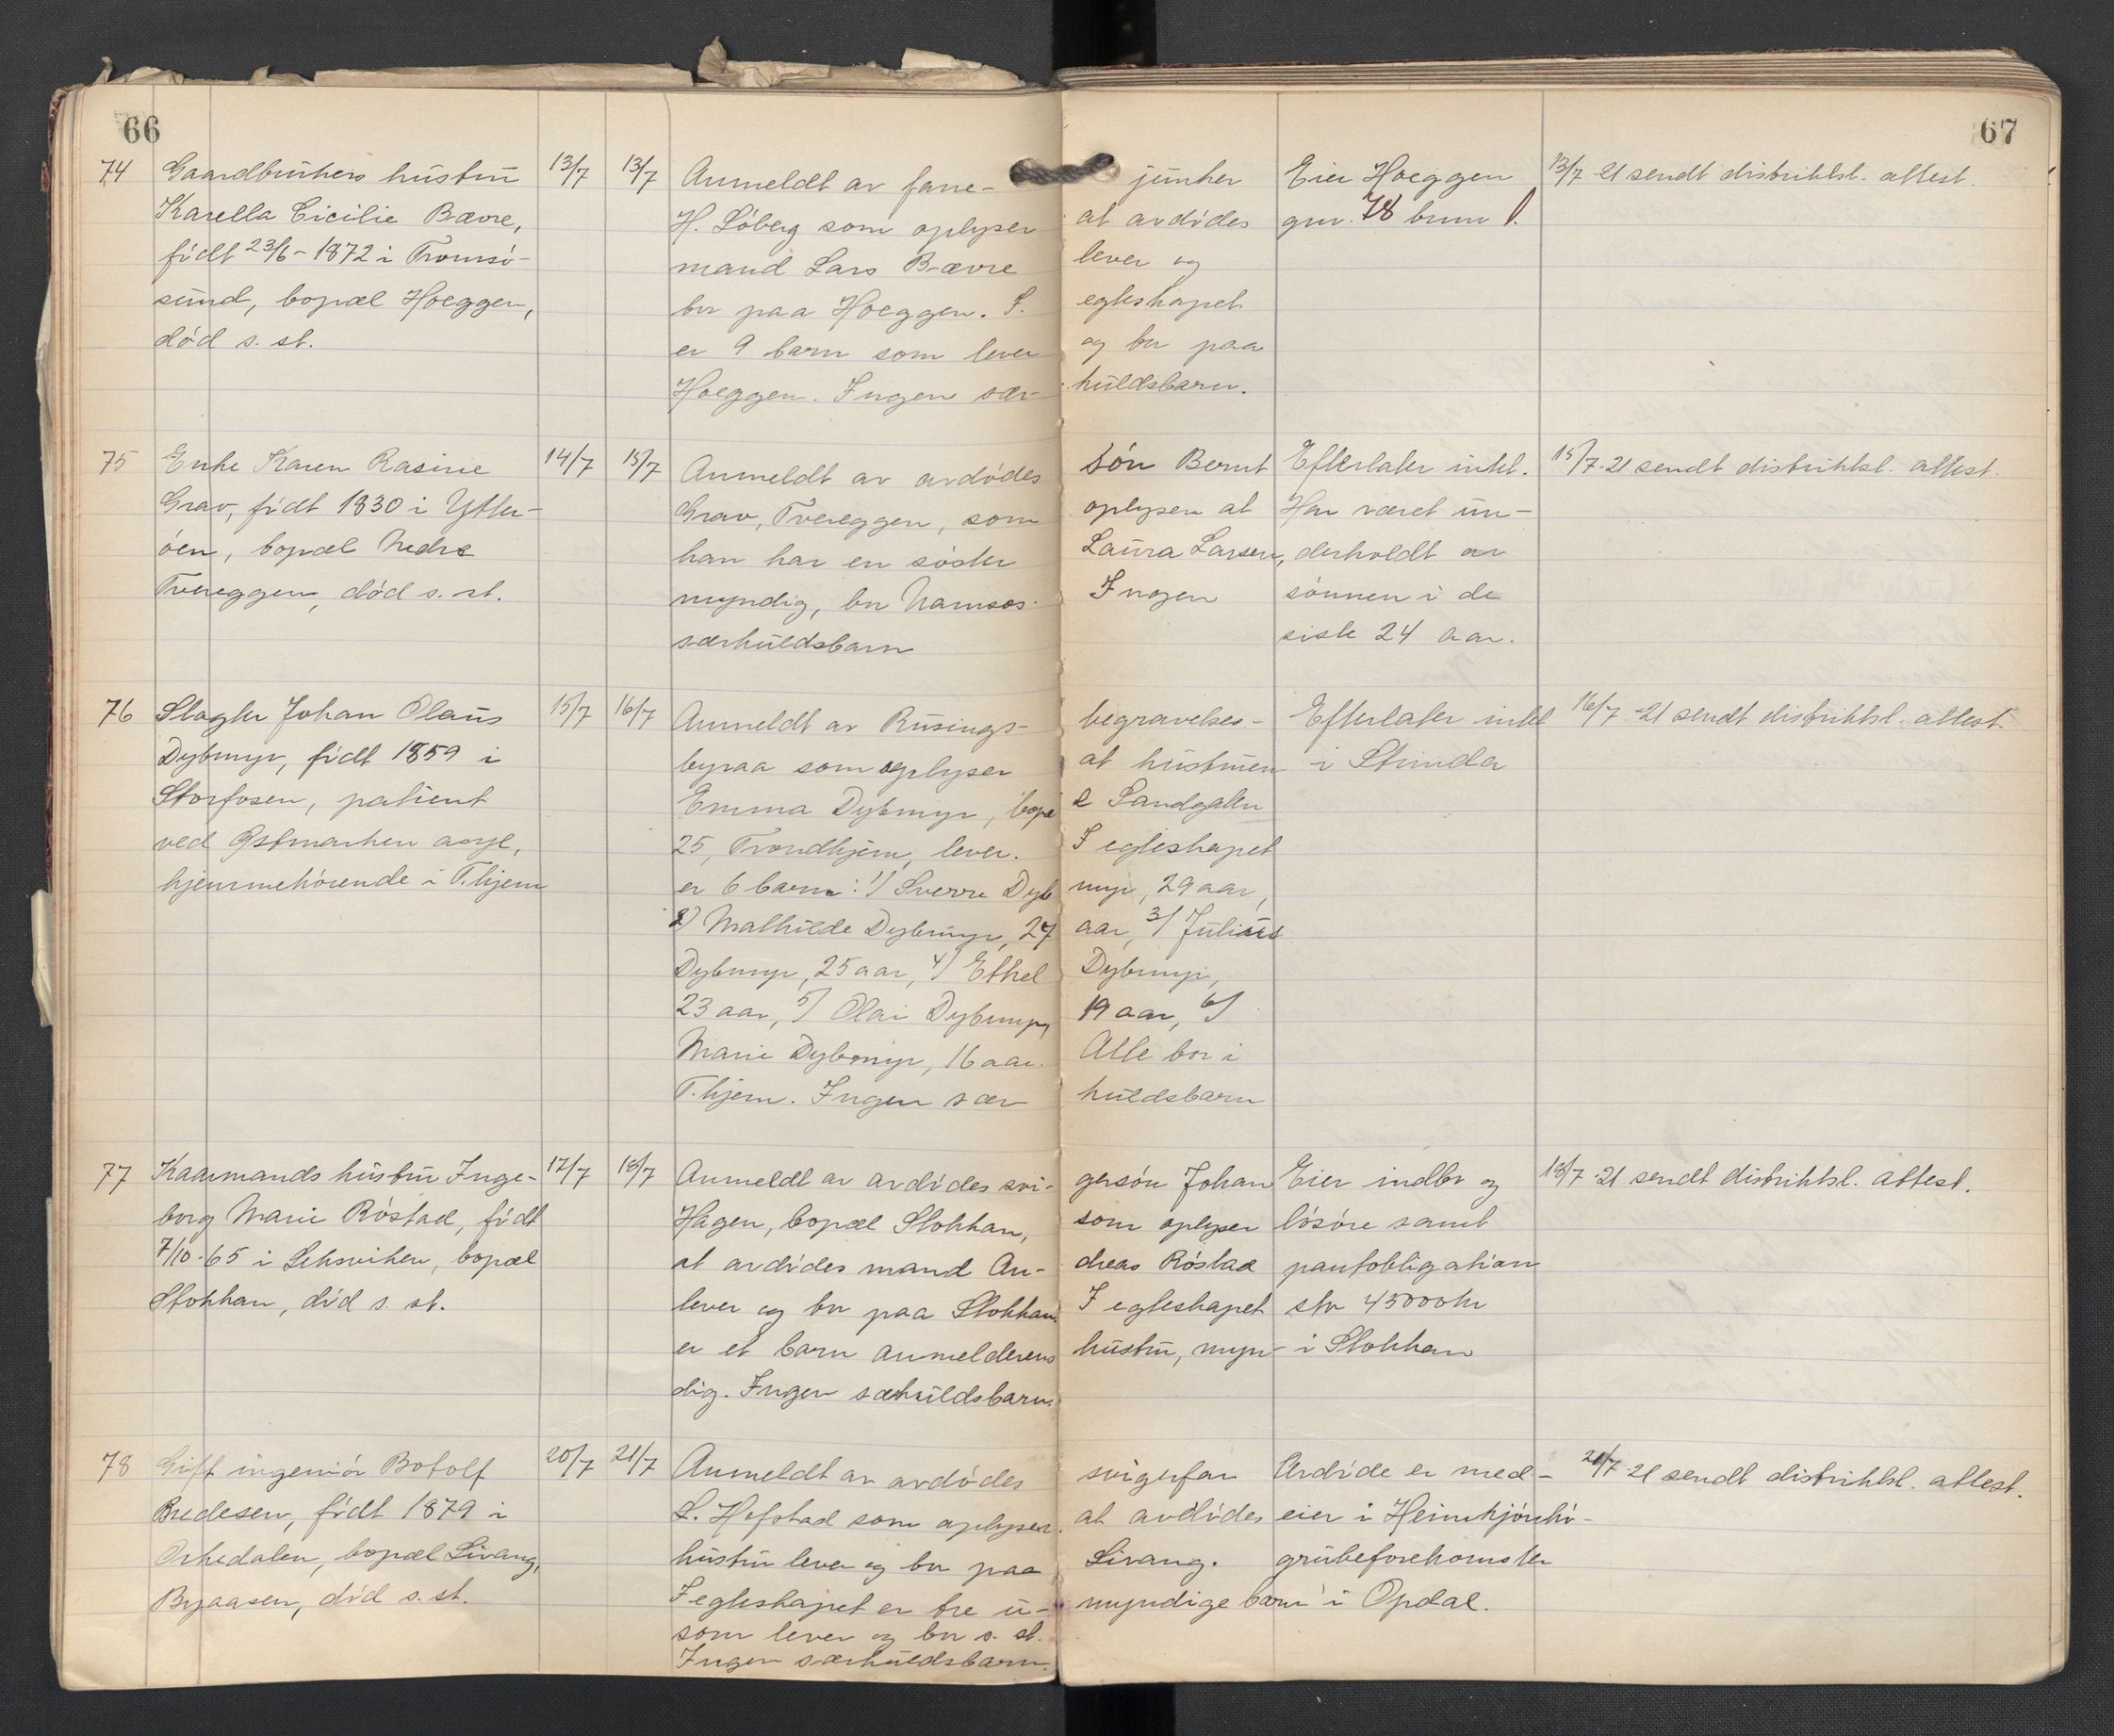 66
67
74 Gaardbrukers hustru 13/7 13/7 Anmeldt av frue- junker Eier Hoeggen 13/7 21 sendt distriktsl. attest.
Karella Cicilie Bævre, H. Löberg som oplyser at avdödes gnr. 78 brnr 1.
födt 23/6-1872 i Tromsö- mand Lars Bævre lever og
sund, bopæl Hoeggen, bor paa Hoeggen. I egteskapet
död s. st. er 9 barn som lever og bor paa
Hoeggen. Ingen sær- kuldsbarn.
75 Enke Karen Rasine 14/7 15/7 Anmeldt av avdödes sön Bernt Efterlater intet. 15/7-21 sendt distriktsl. attest.
Grav, födt 1830 i Ytter- Grav, Tvereggen, som oplyser at Har været un-
öen, bopæl Nedre han har en söster Laura Larsen, derholdt av
Tvereggen, död s. st. myndig, bor Namsos. Ingen sönnen i de
særkuldsbarn siste 24 aar.
76 Slagter Johan Olaus 15/7 16/7 Anmeldt av Rusings- begravelses- Efterlater intet 16/7-21 sendt distriktsl. attest.
Dybmyr, födt 1859 i byraa som oplyser at hustruen i Strinda
Storfosen, patient Emma Dybmyr, bopæ l Sandgaten
ved Östmarken asyl, 25, Trondhjem, lever. I egteskapet
hjemmehörende i T.hjem er 6 barn: 1/ Sverre Dyb myr, 29 aar,
2) Mathilde Dybmyr, 27 aar, 3/ Julius
Dybmyr, 25 aar, 4/ Ethel Dybmyr,
23 aar, 5/ Olai Dybmyr, 19 aar, 6/
Marie Dybmyr, 16 aar. Alle bor i
T.hjem. Ingen sær kuldsbarn
77 Kaarmands hustru Inge- 17/7 18/7 Anmeldt av avdödes svi- gersön Johan Eier indbo og 18/7-21 sendt distriktsl. attest.
borg Marie Röstad, födt Hagen, bopæl Stokkan, som oplyser lösöre samt
7/10-65 i Leksviken, bopæl at avdödes mand An- dreas Röstad pantobligation
Stokkan, död s. st. lever og bor paa Stokkan. I egteskapet stor 45000 kr
er et barn anmelderens hustru, myn- i Stokkan
dig. Ingen særkuldsbarn.
78 Gift ingeniör Botolf 20/7 21/7 Anmeldt av avdödes svigerfar Avdöde er med- 21/7-21 sendt distriktsl. attest.
Bredesen, födt 1879 i L. Hofstad som oplyser at avdödes eier i
Orkedalen, bopæl Livang, hustru lever og bor paa Livang. grubeforekomster
Byaasen, död s. st. I egteskapet er tre u- myndige barn i Opdal.
som lever og bor s. st.
Ingen særkuldsbarn.